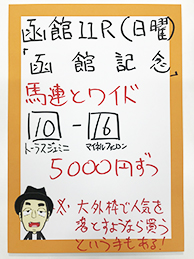 函館11R(日曜)
「函館記念」
馬連とワイド
10-16
トーラスジェミニ マイネルファンロン
5000円ずつ
※大外枠で人気を
落とすようなら買う
という手もある!